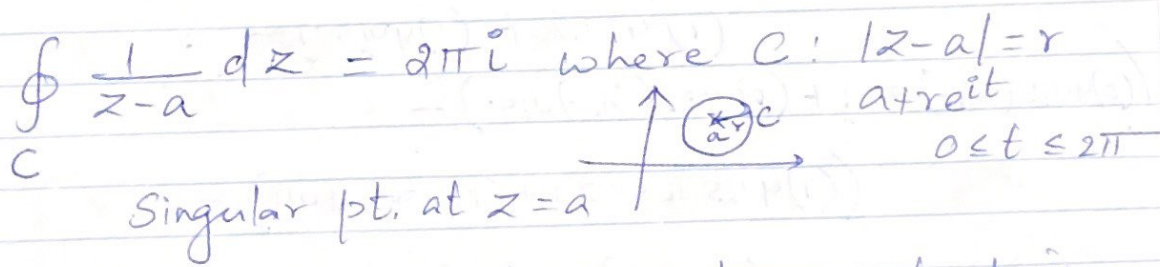 ∮ 1/(z-a) dz = 2πi where C : |z-a| = r
C
a+re^{it}
0 ≤ t ≤ 2π
x a r C
Singular pt. at z = a